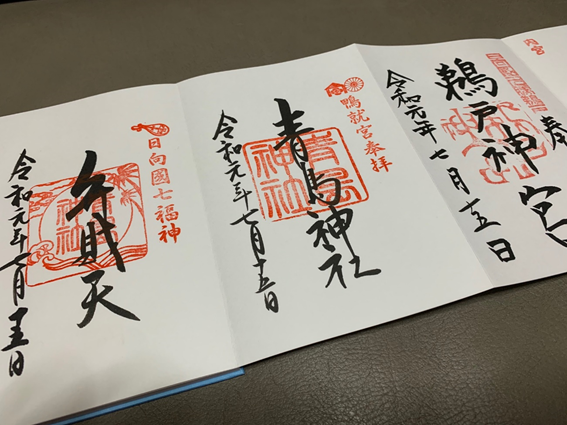 内宮
奉
鵜戸神宮
令和元年七月十五日
鴨就宮奉拝
青島神社
青島神社
令和元年七月十五日
日向國七福神
弁財天
令和元年七月十五日